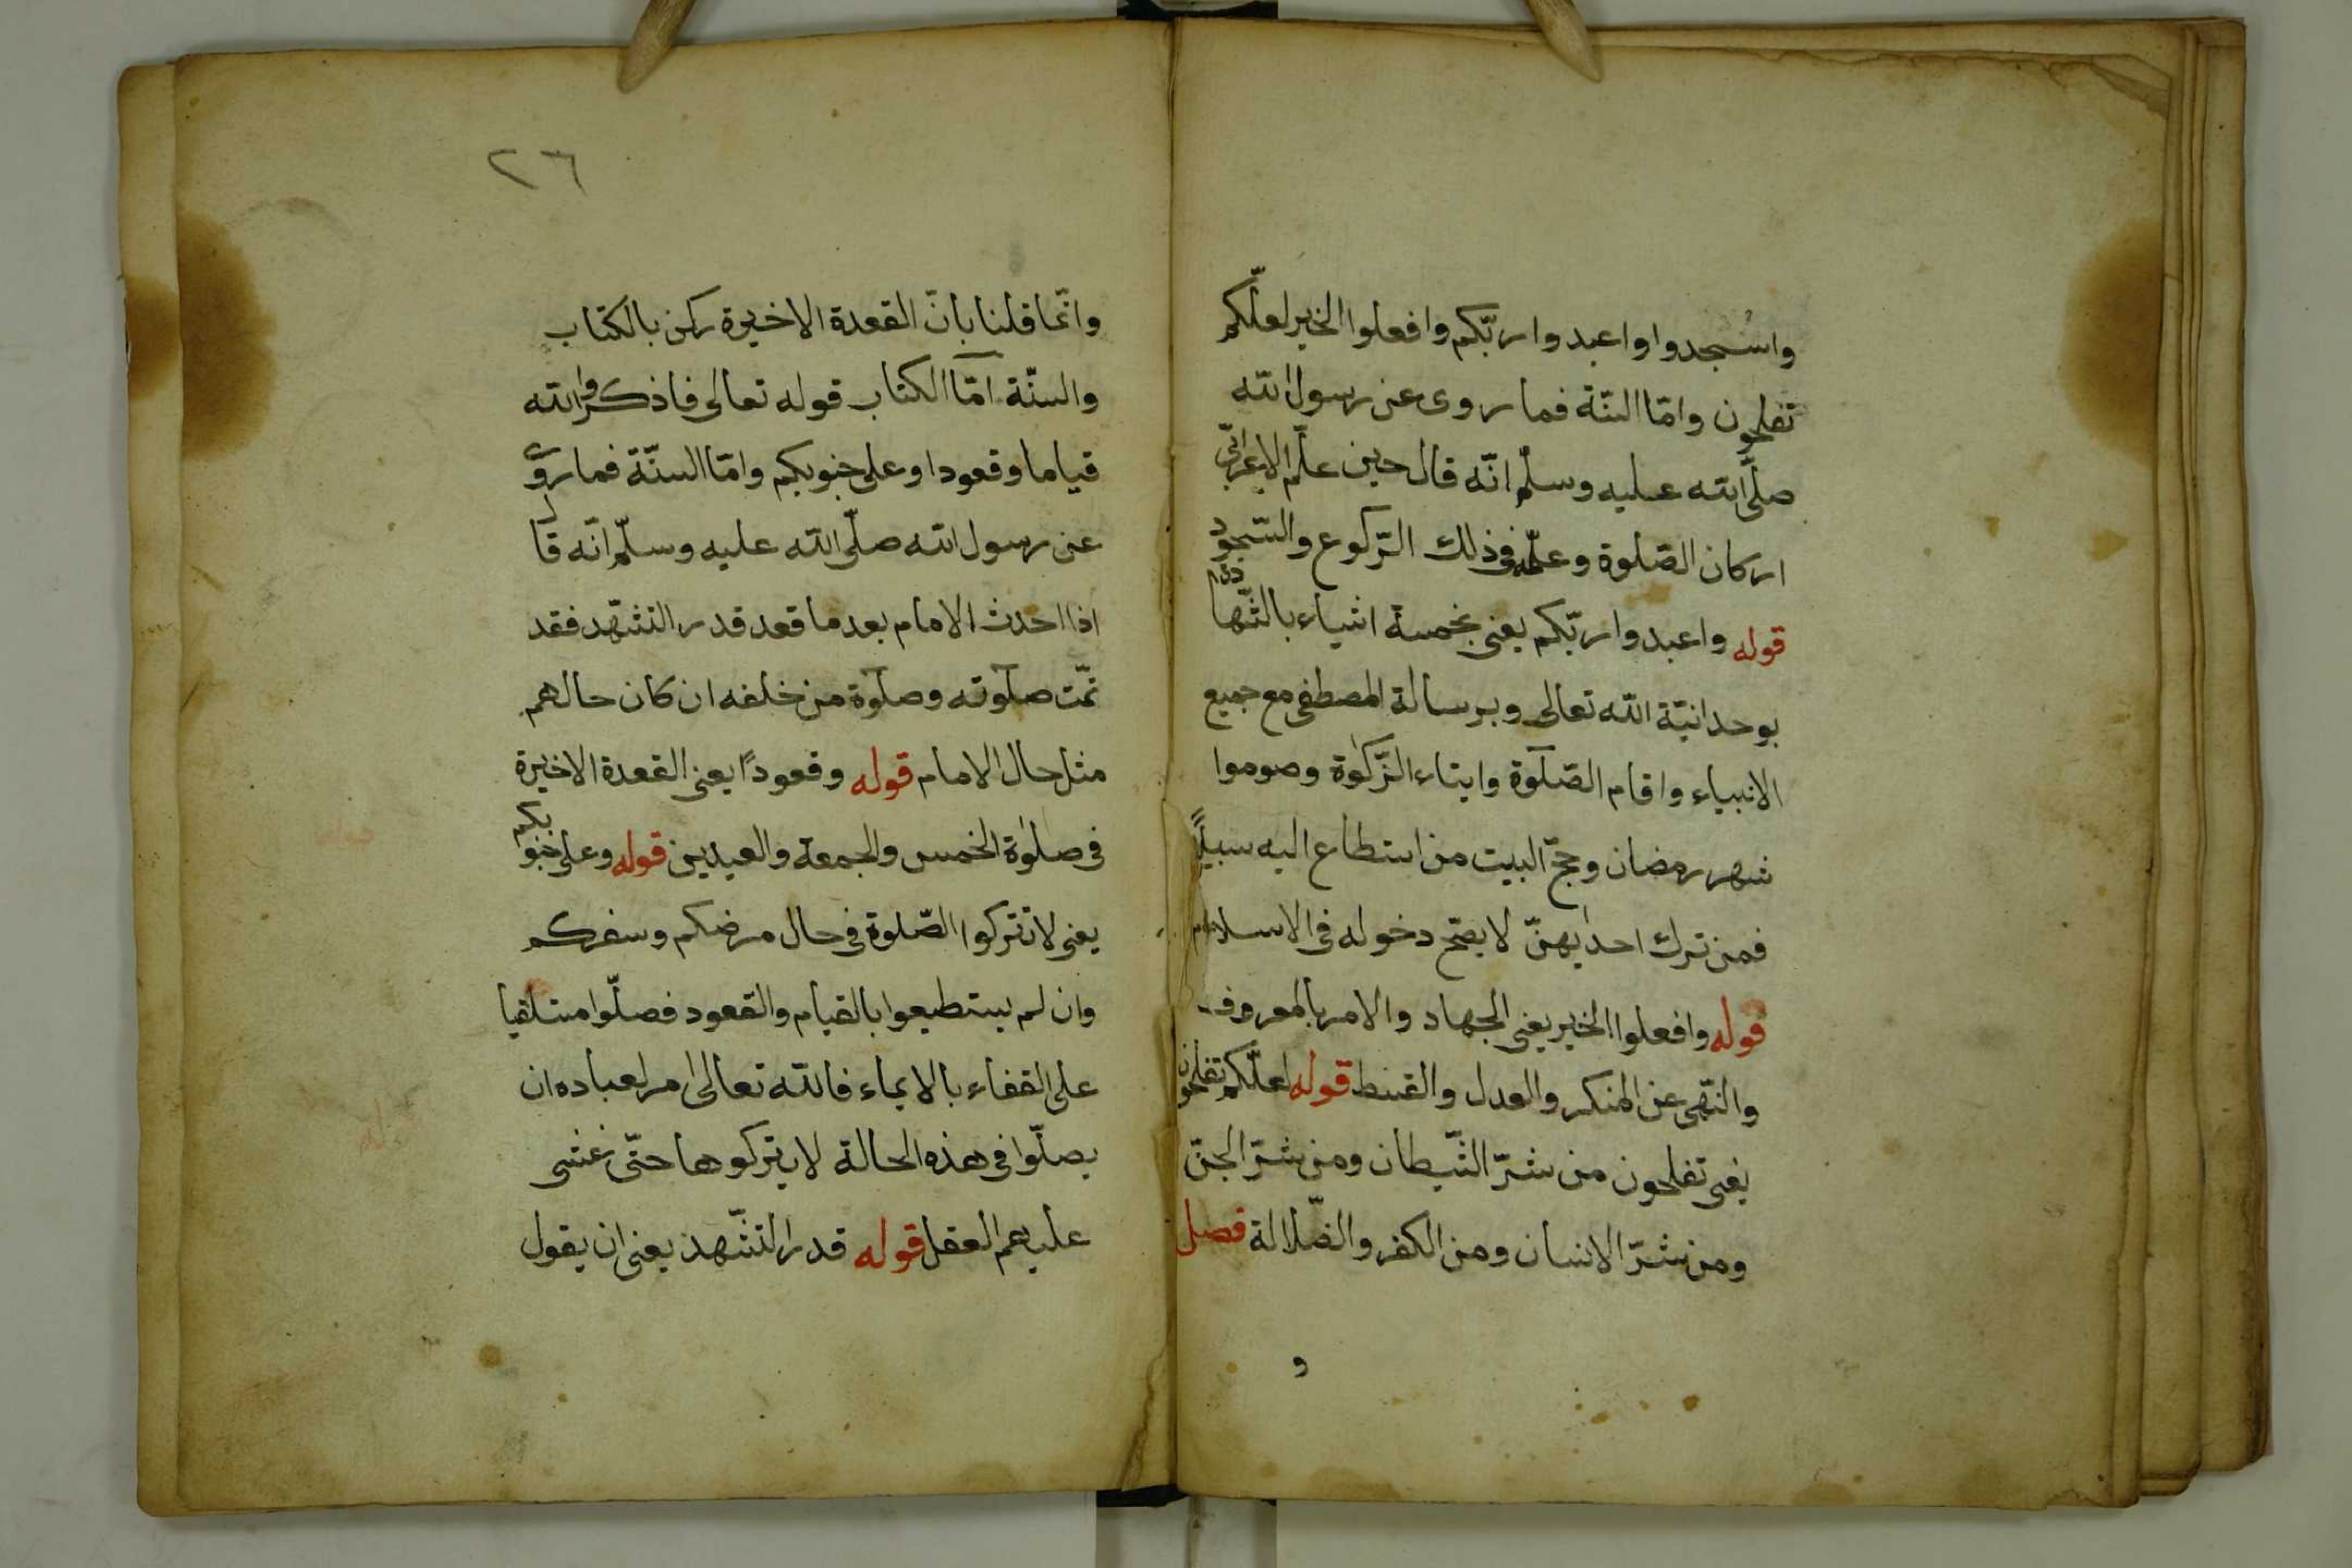 واسجدوا واعبدوا ربّكم وافعلوا الخير لعلّكم
تفلحون وامّا السنّة فما روى عن رسول الله
صلّى الله عليه وسلّم انّه قال حين علّم الاعرابىّ
اركان الصّلوة وعلّمه فى ذلك الرّكوع والسّجود
قوله واعبدوا ربّكم يعنى بخمسة اشياء بالشّهادة
بوحدانيّة الله تعالى وبرسالة المصطفى مع جميع
الانبياء واقام الصّلوة وايتاء الزّكوة وصوموا
شهر رمضان وحجّ البيت من استطاع اليه سبيلاً
فمن ترك احديهنّ لا يصحّ دخوله فى الاسلام
قوله وافعلوا الخير يعنى الجهاد والامر بالمعروف
والنّهى عن المنكر والعدل والقسط قوله لعلّكم تفلحون
يعنى تفلحون من شرّ الشّيطان ومن شرّ الجنّ
ومن شرّ الانسان ومن الكفر والضّلالة فصل
و
٢٦
وانّما قلنا بانّ القعدة الاخيرة ركن بالكتاب
والسنّة امّا الكتاب قوله تعالى فاذكروا الله
قياما وقعودا وعلى جنوبكم وامّا السنّة فما روى
عن رسول الله صلّى الله عليه وسلّم انّه قال
اذا احدث الامام بعد ما قعد قدر التشهّد فقد
تمّت صلوته وصلوة من خلفه ان كان حالهم
مثل حال الامام قوله وقعودًا يعنى القعدة الاخيرة
فى صلوة الخمس والجمعة والعيدين قوله وعلى جنوبكم
يعنى لا تتركوا الصّلوة فى حال مرضكم وسفركم
وان لم يستطيعوا بالقيام والقعود فصلّوا مستلقيا
على القفاء بالايماء فالله تعالى امر لعباده ان
يصلّوا فى هذه الحالة لا يتركوها حتّى غشى
عليهم العقل قوله قدر التشّهد يعنى ان يقول